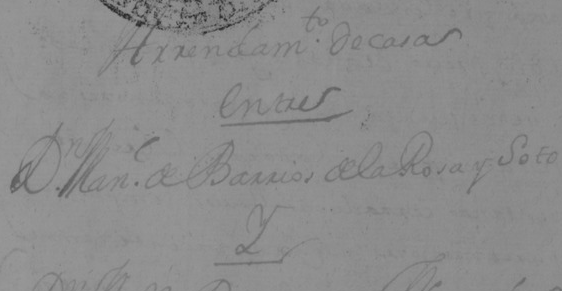 Arrendam.to de casas
Entre
Dn Man.l de Barrios de la Rosa y Soto
Y